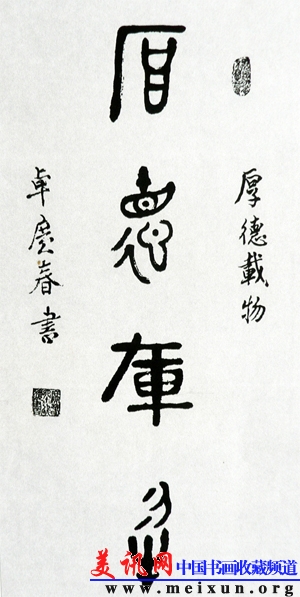 厚德載物
厚德載物
卓慶春書
美讯网 中国书画收藏频道
www.meixun.org